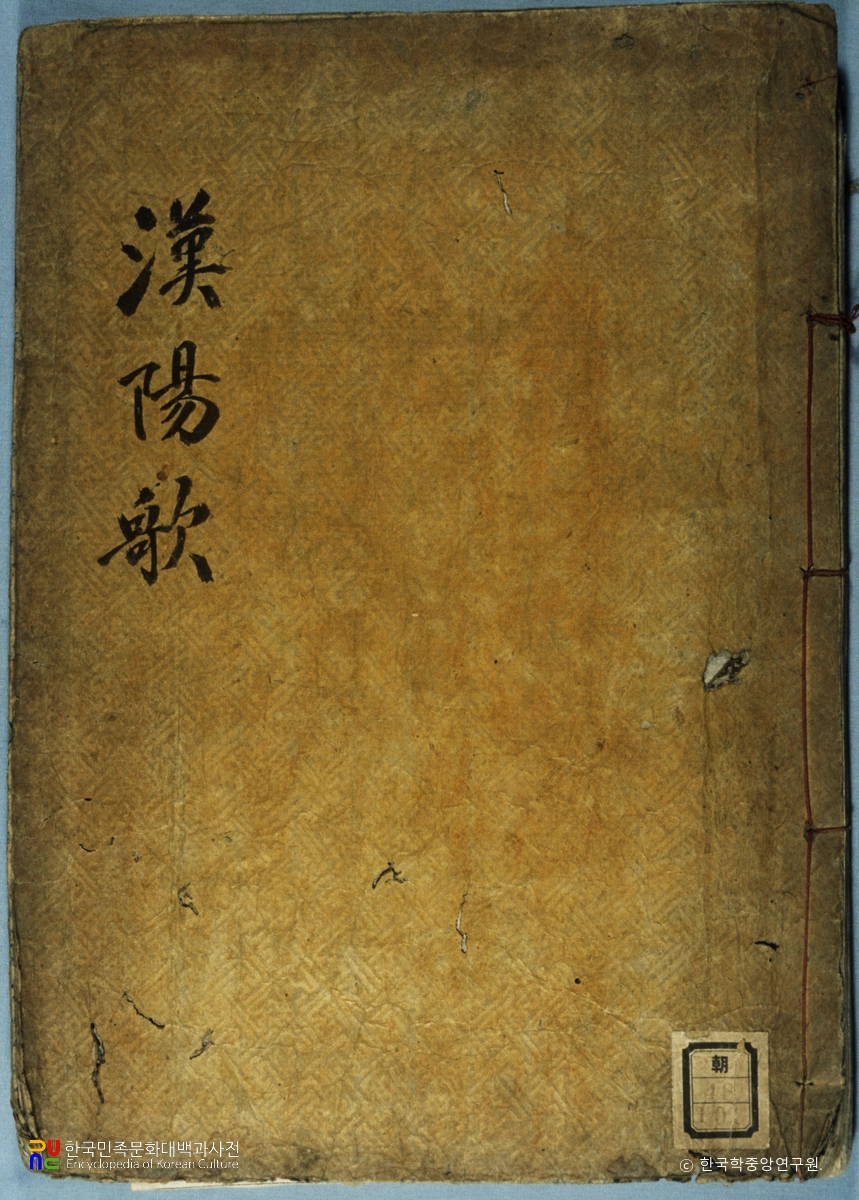 漢陽歌
朝
한국민족문화대백과사전
Encyclopedia of Korean Culture
© 한국학중앙연구원